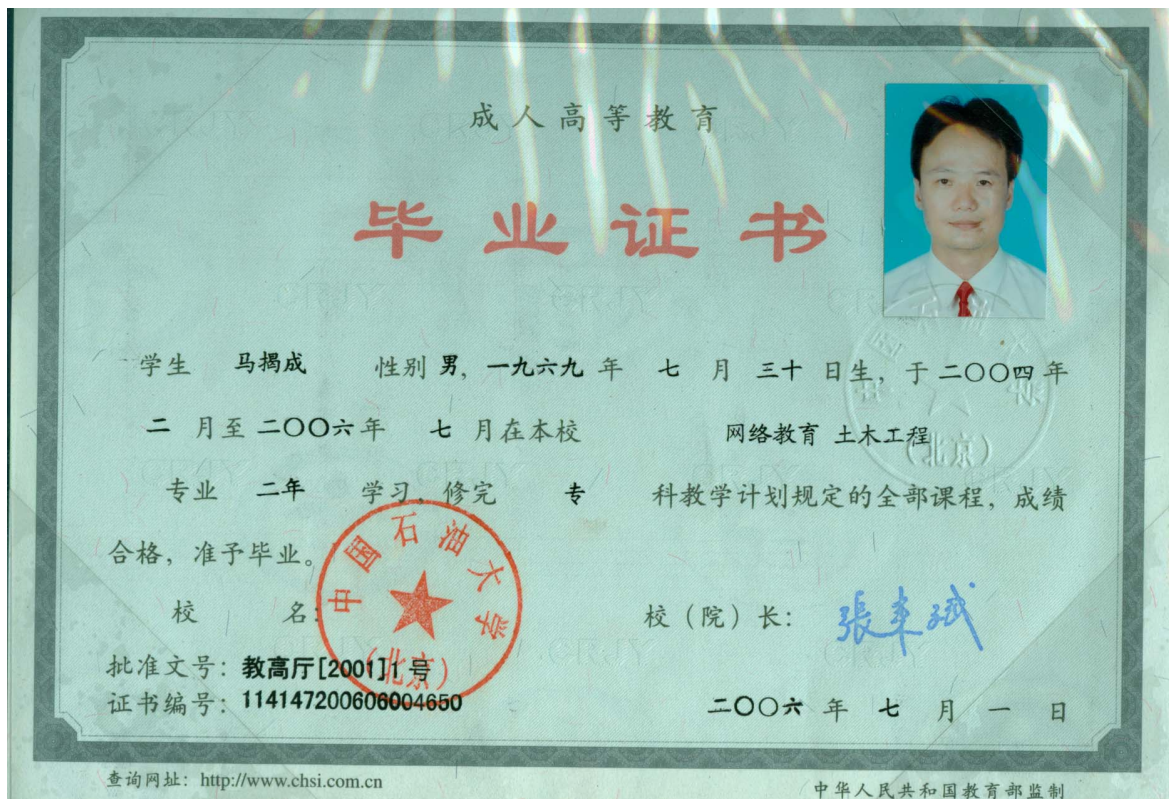 成人高等教育
毕业证书
学生 马揭成 性别 男, 一九六九 年 七 月 三十 日生, 于 二〇〇四 年
二 月至 二〇〇六 年 七 月在本校 网络教育 土木工程
专业 二年 学习, 修完 专 科教学计划规定的全部课程, 成绩
合格, 准予毕业。
校 名: 中国石油大学 (北京)
校（院）长: 張来斌
批准文号: 教高厅[2001]1号
证书编号: 114147200606004650
二〇〇六 年 七 月 一 日
查询网址: http://www.chsi.com.cn
中华人民共和国教育部监制